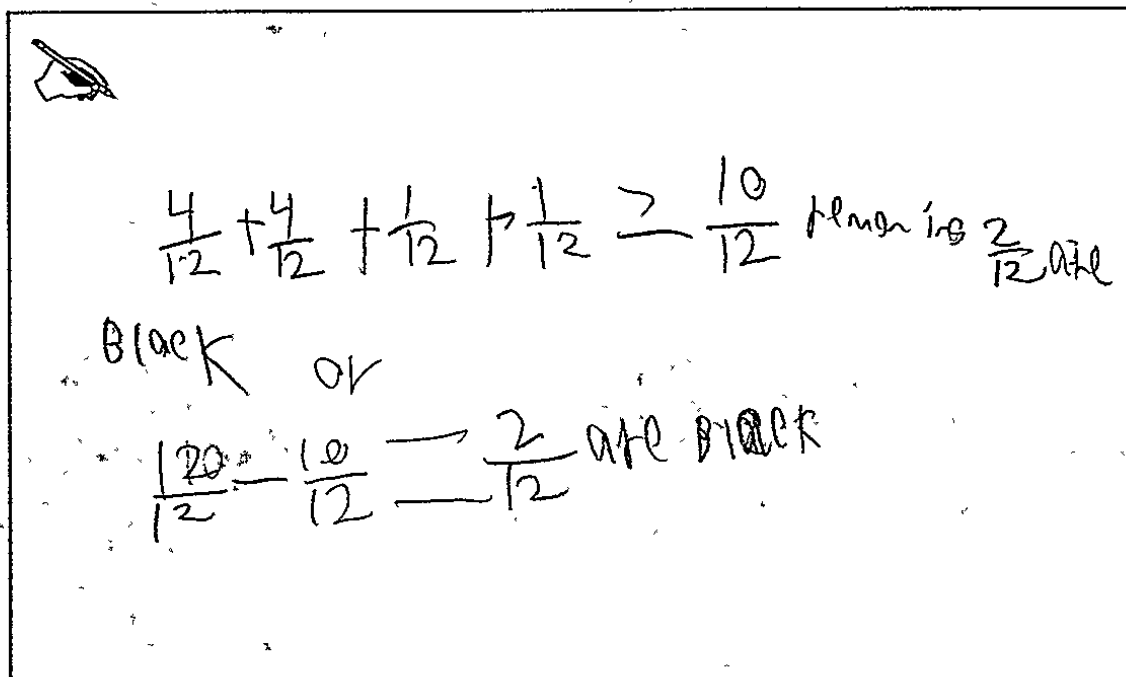 4/12 + 4/12 + 1/12 + 1/12 = 10/12 remaning 2/12 are
Black or
120/12 - 10/12 = 2/12 are Black